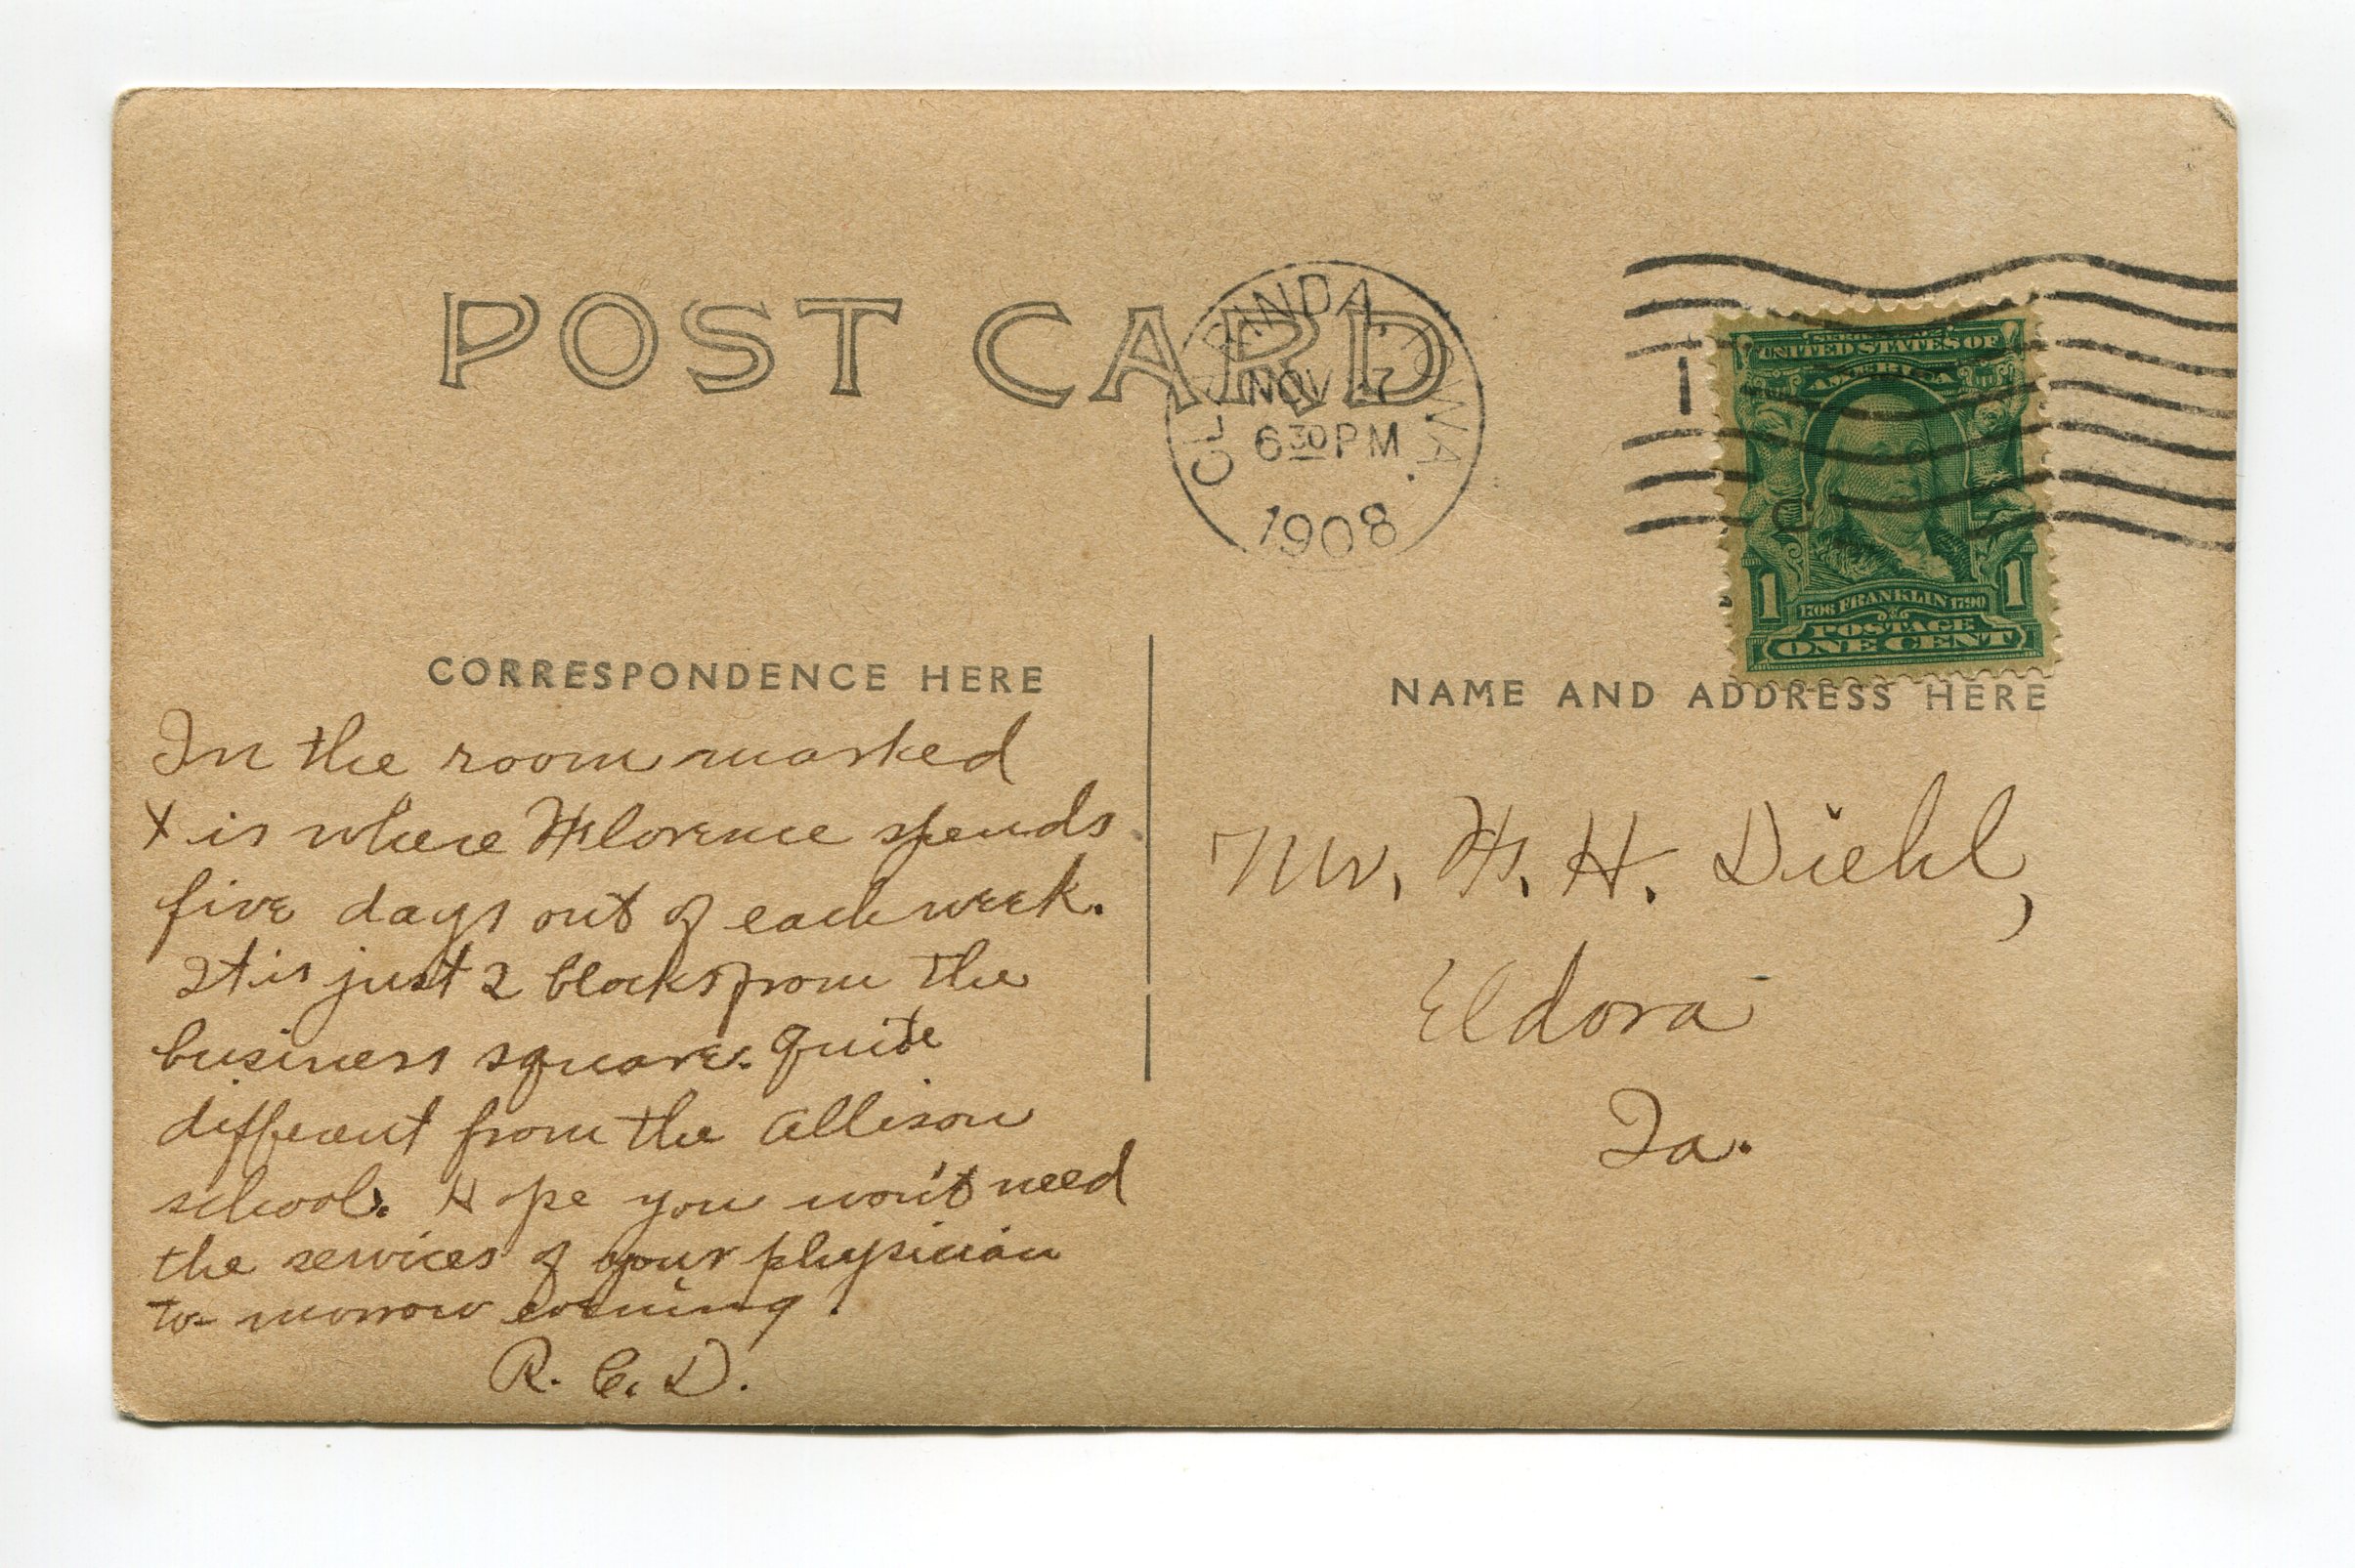 POST CARD
CLARINDA, IOWA.
NOV 27
6 30 PM
1908
1
SERIES 1902
UNITED STATES OF
AMERICA
1 1706 FRANKLIN 1790 1
POSTAGE
ONE CENT
CORRESPONDENCE HERE
NAME AND ADDRESS HERE
In the room marked
X is where Florence spends
five days out of each week.
It is just 2 blocks from the
business square. Quite
different from the Allison
school. Hope you won't need
the services of your physician
to-morrow evening.
R. C. D.
Mr. F. H. Diehl,
Eldora
Ia.